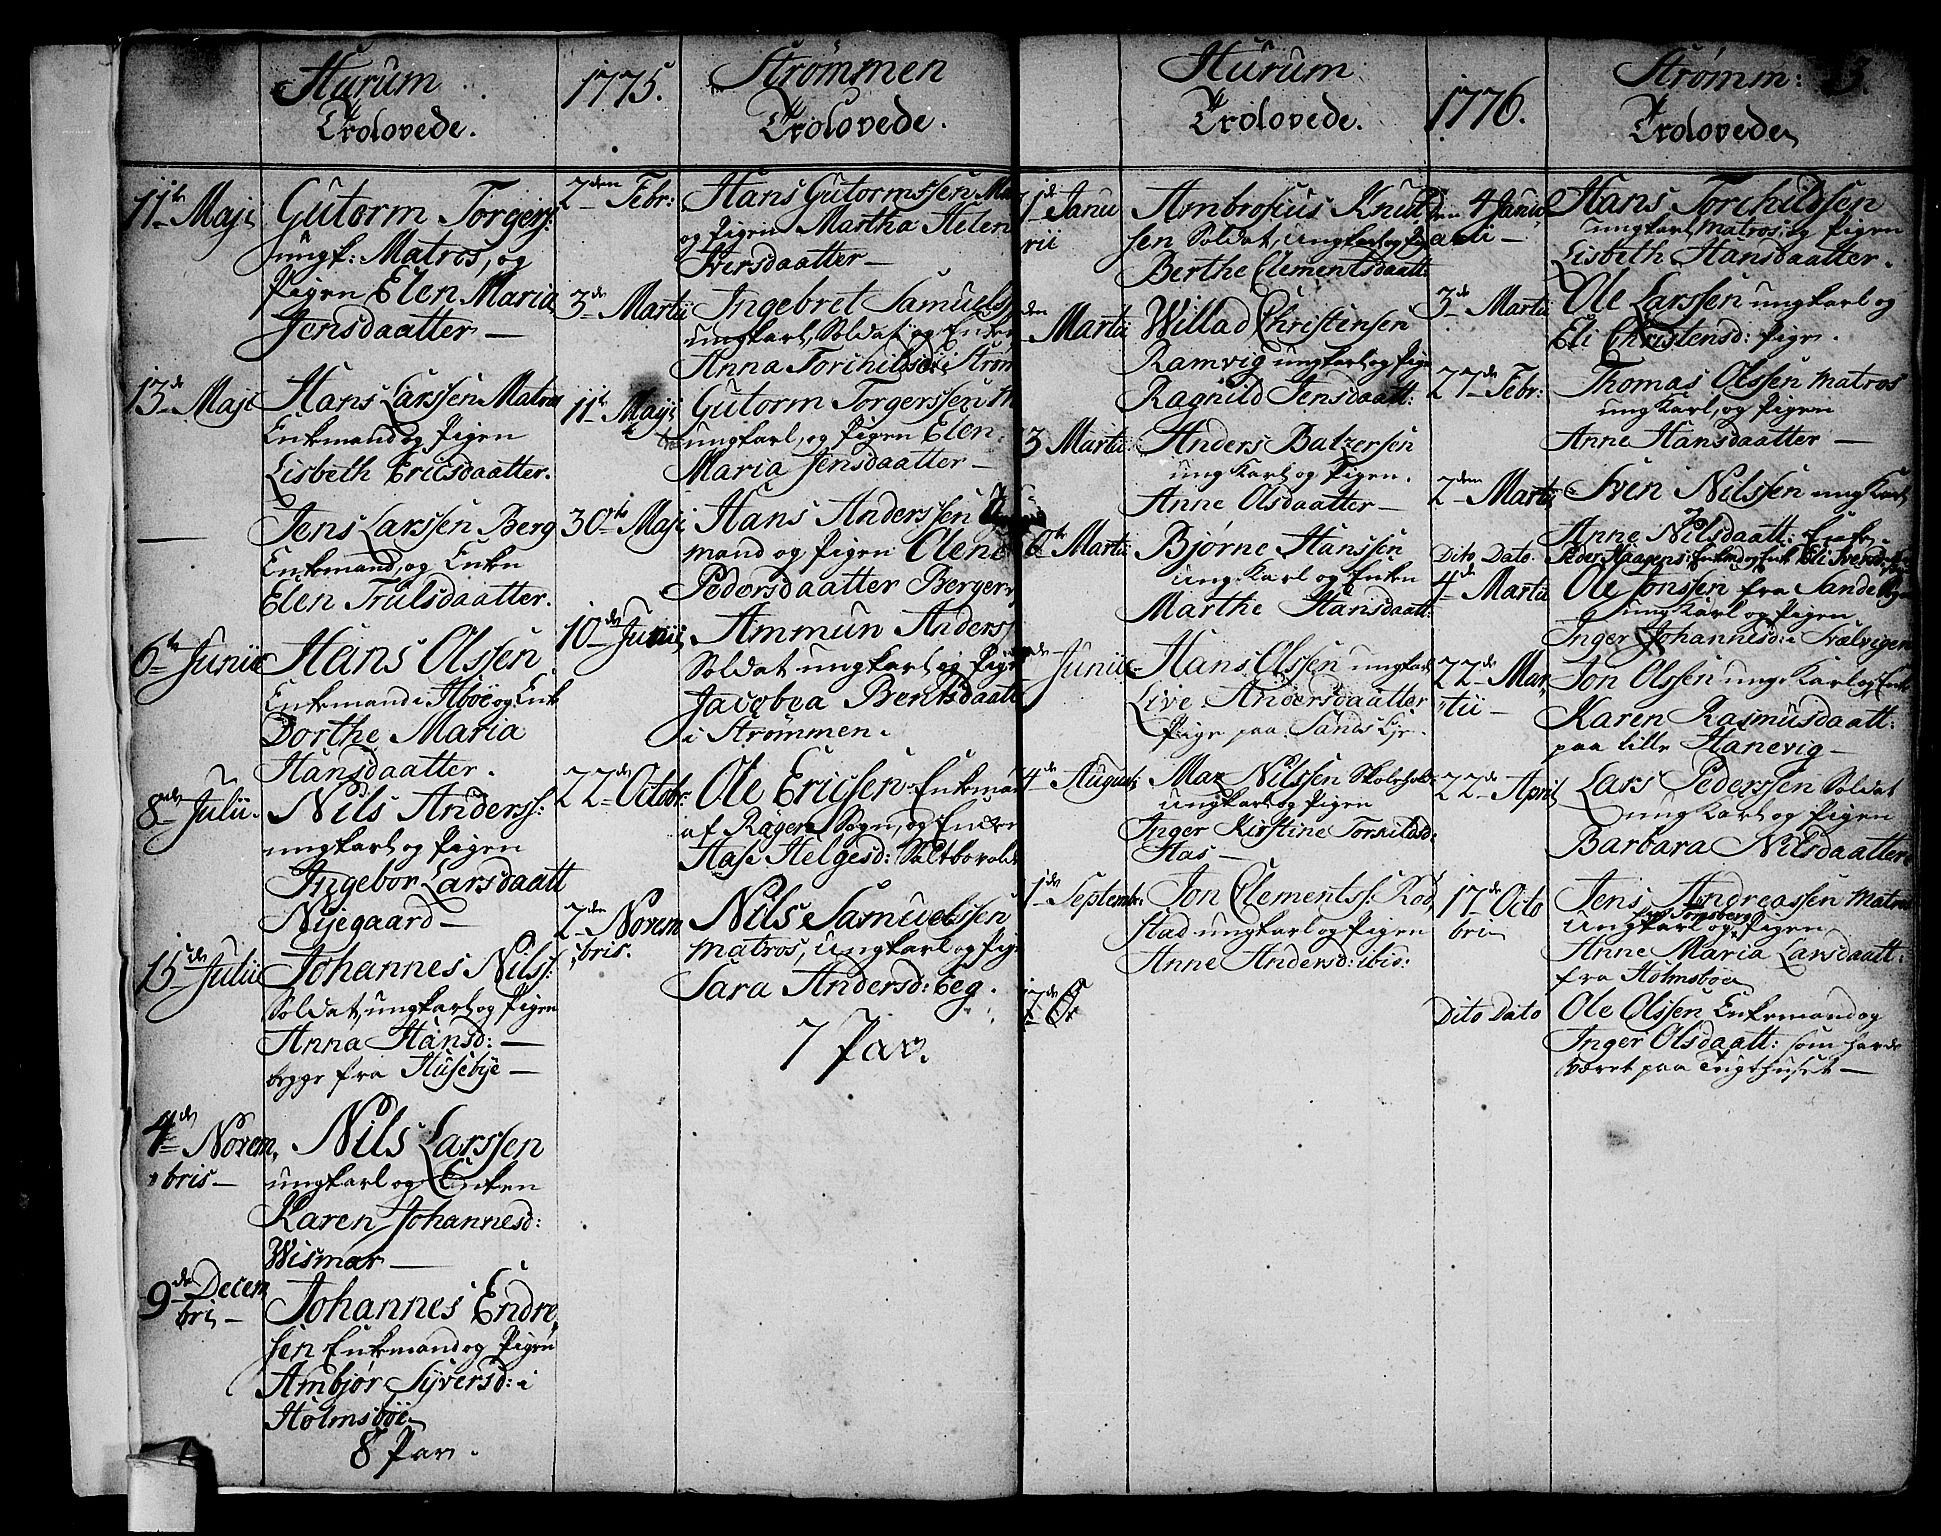 Hurum
Trolovede.
11te Maji
Gutorm Torgers:
ungk: Matros, og
Pigen Elen Maria
Jensdaatter —
13de Maji
Hans Larssen Matros
Enkemand og Pigen
Lisbeth Ericsdaatter.
—
Jens Larssen Berg
Enkemand, og Enken
Elen Trulsdaatter.
6te Junii
Hans Olssen
Enkemand i og Enke
Dorthe Maria
Hansdaatter.
8de Julii.
Nils Anderss:
ungkarl og Pigen
Ingebor Larsdaatt
Nyegaard —
15de Julii
Johannes Nilss:
Soldat, ungkarl og Pigen
Anna Hansd: —
begge fra Husebye —
4de Novem
bris —
Nils Larssen
ungkarl og Enken
Karen Johannesd:
Wismar —
9de Decem
bri —
Johannes Endre
sen Enkemand og Pigen
Ambjør Syversd: i
Holmsboe
8 Par.
1775.
Strømmen
Trolovede.
2den Febr:
Hans Gutormssen
og Pigen Martha Helen
Iversdaatter —
3de Martii
Ingebret Samuels
ungkarl, Soldat og Enken
Anna Torchildsd: i Strøm
11te Maji
Gutorm Torgerssen
ungkarl, og Pigen Elen
Maria Jensdaatter —
30te Maji
Hans Anderssen
mand og Pigen Olene
Pedersdaatter Berger
10de Junii
Ammun Anders
Soldat ungkarl og Pige
Jacobea Bentsdaatt
i Strømmen.
22de Octobr:
Ole Ericsen Enkeman
af Sogn, og Enken
Helgesd:
2den Novem
bris.
Nils Samuelssen
Matros, ungkarl og Pige
Sara Andersd:
7 Par.
Hurum
Trolovede.
1de Janu
rii
Ambrosius Knud
sen Soldat, ungkarl og Pig
Berthe Clementsdaatt
den
Martii
Willad Christensen
Ramvig ungkarl og Pige
Ragnild Jensdaatt:
3 Martii
Anders Baltzersen
ung Karl og Pigen.
Anne Olsdaatter —
6te Martii
Bjørne Hanssen
ung Karl og Enken
Marthe Hansdaatt
Junii
Hans Olssen ungkarl
Live Andersdaatter
Pige paa Sands Eje.
4de Augusti
Nilssen Skoleholder
ungkarl og Pigen
Inger Kirstine Torkildsd:
Has —
1de Septembr:
Jon Clementss: Rød,
stad ungkarl og Pigen
Anne Andersd: ibid:
17de
1776.
Strømm: 13.
Trolovede
den 4 Janu
arii —
Hans Torchildssen
ungkarl Matros, og Pigen
Lisbeth Hansdaatter.
3de Martii
Ole Larssen ungkarl og
Eli Christensd: Pige.
27de Febr:
Thomas Olssen Matros
ung Karl, og Pigen
Anne Hansdaatter —
2den Martii
Sven Nilssen ung Karl
Anne Nilsdaatt: Enke
Dito Dato
Peder
4de Martii
Ole Jonssen fra Sande
ung Karl og Pigen
Inger Johannesd: i Svelvigen
22de Mar,
tii —
Jon Olssen ung Karl og Enke
Karen Rasmusdaatt:
paa lille Hanevig —
22de April
Lars Pederssen Soldat
ung Karl og Pigen
Barbara Nilsdaatter
17de Octo
bri
Jens Andreassen Matros
fra Tonsberg
ungkarl og Pigen
Anne Maria Larsdaatt:
fra Holmsboe
Dito Dato
Ole Olssen Enkemand og
Inger Olsdaatt: som havde
været paa Tugthuset —